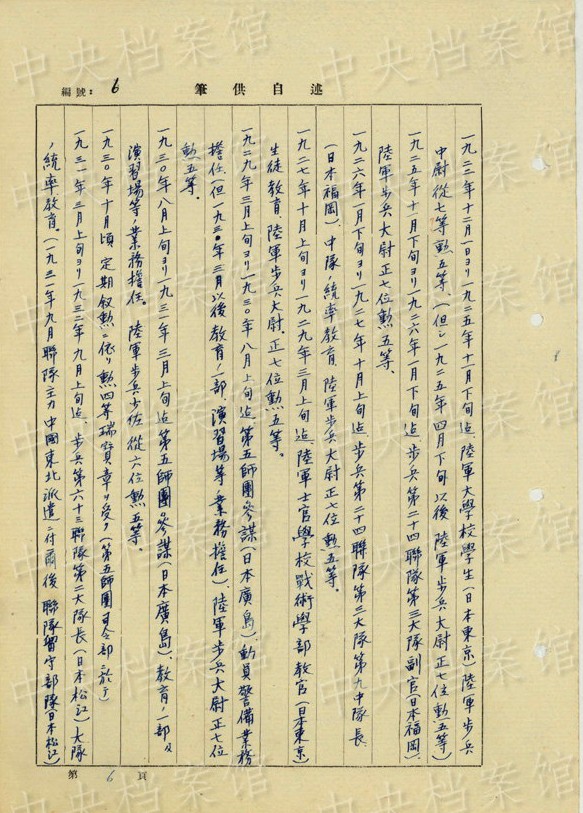 中央档案馆
編號：6
筆供自述
一九二二年十二月一日ヨリ一九二五年十一月下旬迠、陸軍大學校學生（日本東京）陸軍步兵
中尉從七等勲五等、（但シ一九二五年四月下旬以後 陸軍步兵大尉正七位勲五等）
一九二五年十一月下旬ヨリ一九二六年一月下旬迠 步兵第二十四聯隊第三大隊副官（日本福岡）、
陸軍步兵大尉正七位勲五等。
一九二六年一月下旬ヨリ一九二七年十月上旬迠、步兵第二十四聯隊第三大隊第九中隊長
（日本福岡）、中隊ノ統率教育、陸軍步兵大尉正七位勲五等。
一九二七年十月上旬ヨリ一九二九年三月上旬迠、陸軍士官學校戦術學部教官（日本東京）
生徒教育、陸軍步兵大尉。正七位勲五等。
一九二九年三月上旬ヨリ一九三〇年八月上旬迠 第五師團參謀（日本廣島）、動員警備業務
擔任、但一九三〇年三月以後 教育ノ一部、演習場等ノ業務擔任）、陸軍步兵大尉正七位
勲五等。
一九三〇年八月上旬ヨリ一九三一年三月上旬迠 第五師團參謀（日本廣島）、教育ノ一部及
演習場等ノ業務擔任。陸軍步兵少佐從六位勲五等。
一九三〇年十月頃 定期叙勲ニ依リ勲四等瑞寶章ヲ受ク（第五師團司令部ニ於テ）
一九三一年三月上旬ヨリ一九三二年九月上旬迠、步兵第六十三聯隊第二大隊長（日本松江）大隊
ノ統率教育。（一九三一年九月聯隊主力中國東北派遣ニ付爾後 聯隊留守部隊（日本松江）
第6頁